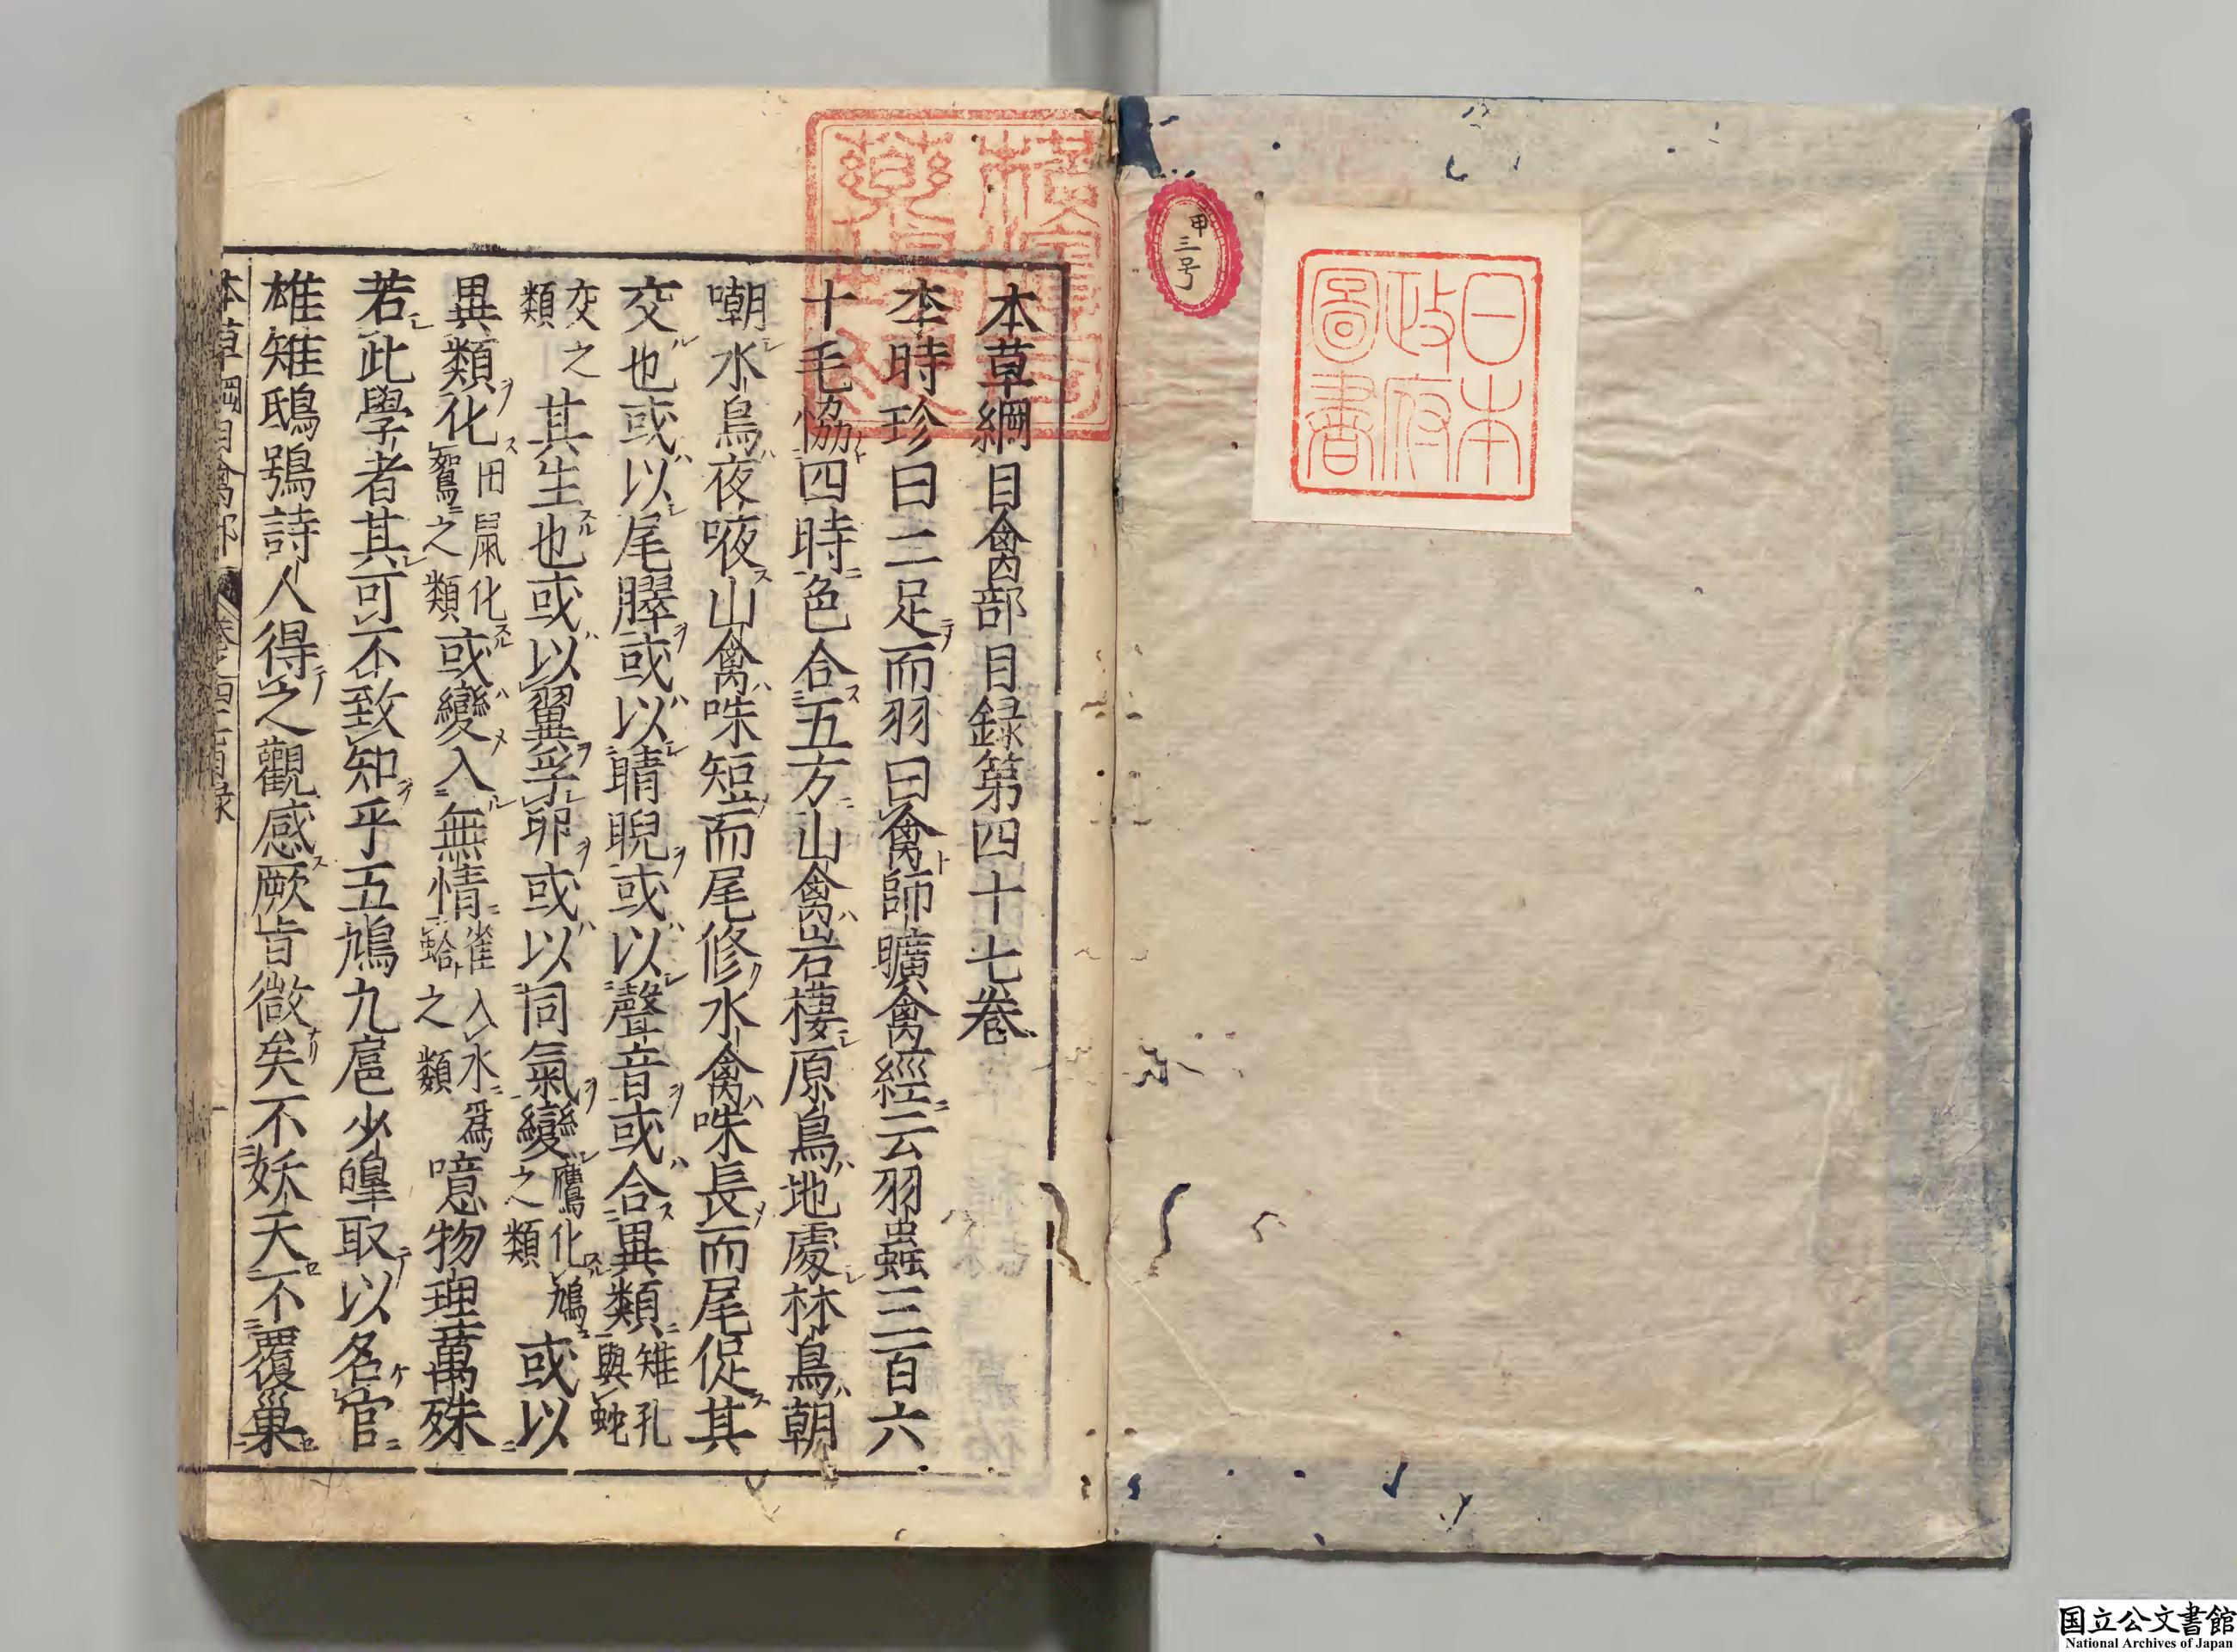 甲
三
号
日本
政府
圖書
本草綱目禽部目録第四十七卷
李時珍曰二足而羽曰禽師曠禽經云羽蟲三百六
十毛恊四時色合五方山禽岩棲原鳥地處林鳥朝
嘲水鳥夜㖡山禽咮短而尾修水禽咮長而尾促其
交也或以尾臎或以睛睨或以聲音或合異類雉孔與蛇
交之類其生也或以翼孚卵或以同氣變鷹化鳩之類或以
異類化田鼠化鴽之類或變入無情雀入水爲蛤之類噫物理萬殊
若此學者其可不致知乎五鳩九鳸少皥取以名官
雄雉鴟鴞詩人得之觀感厥旨微矣不妖夭不覆巢
本草綱目禽部 目録
国立公文書館
National Archives of Japan